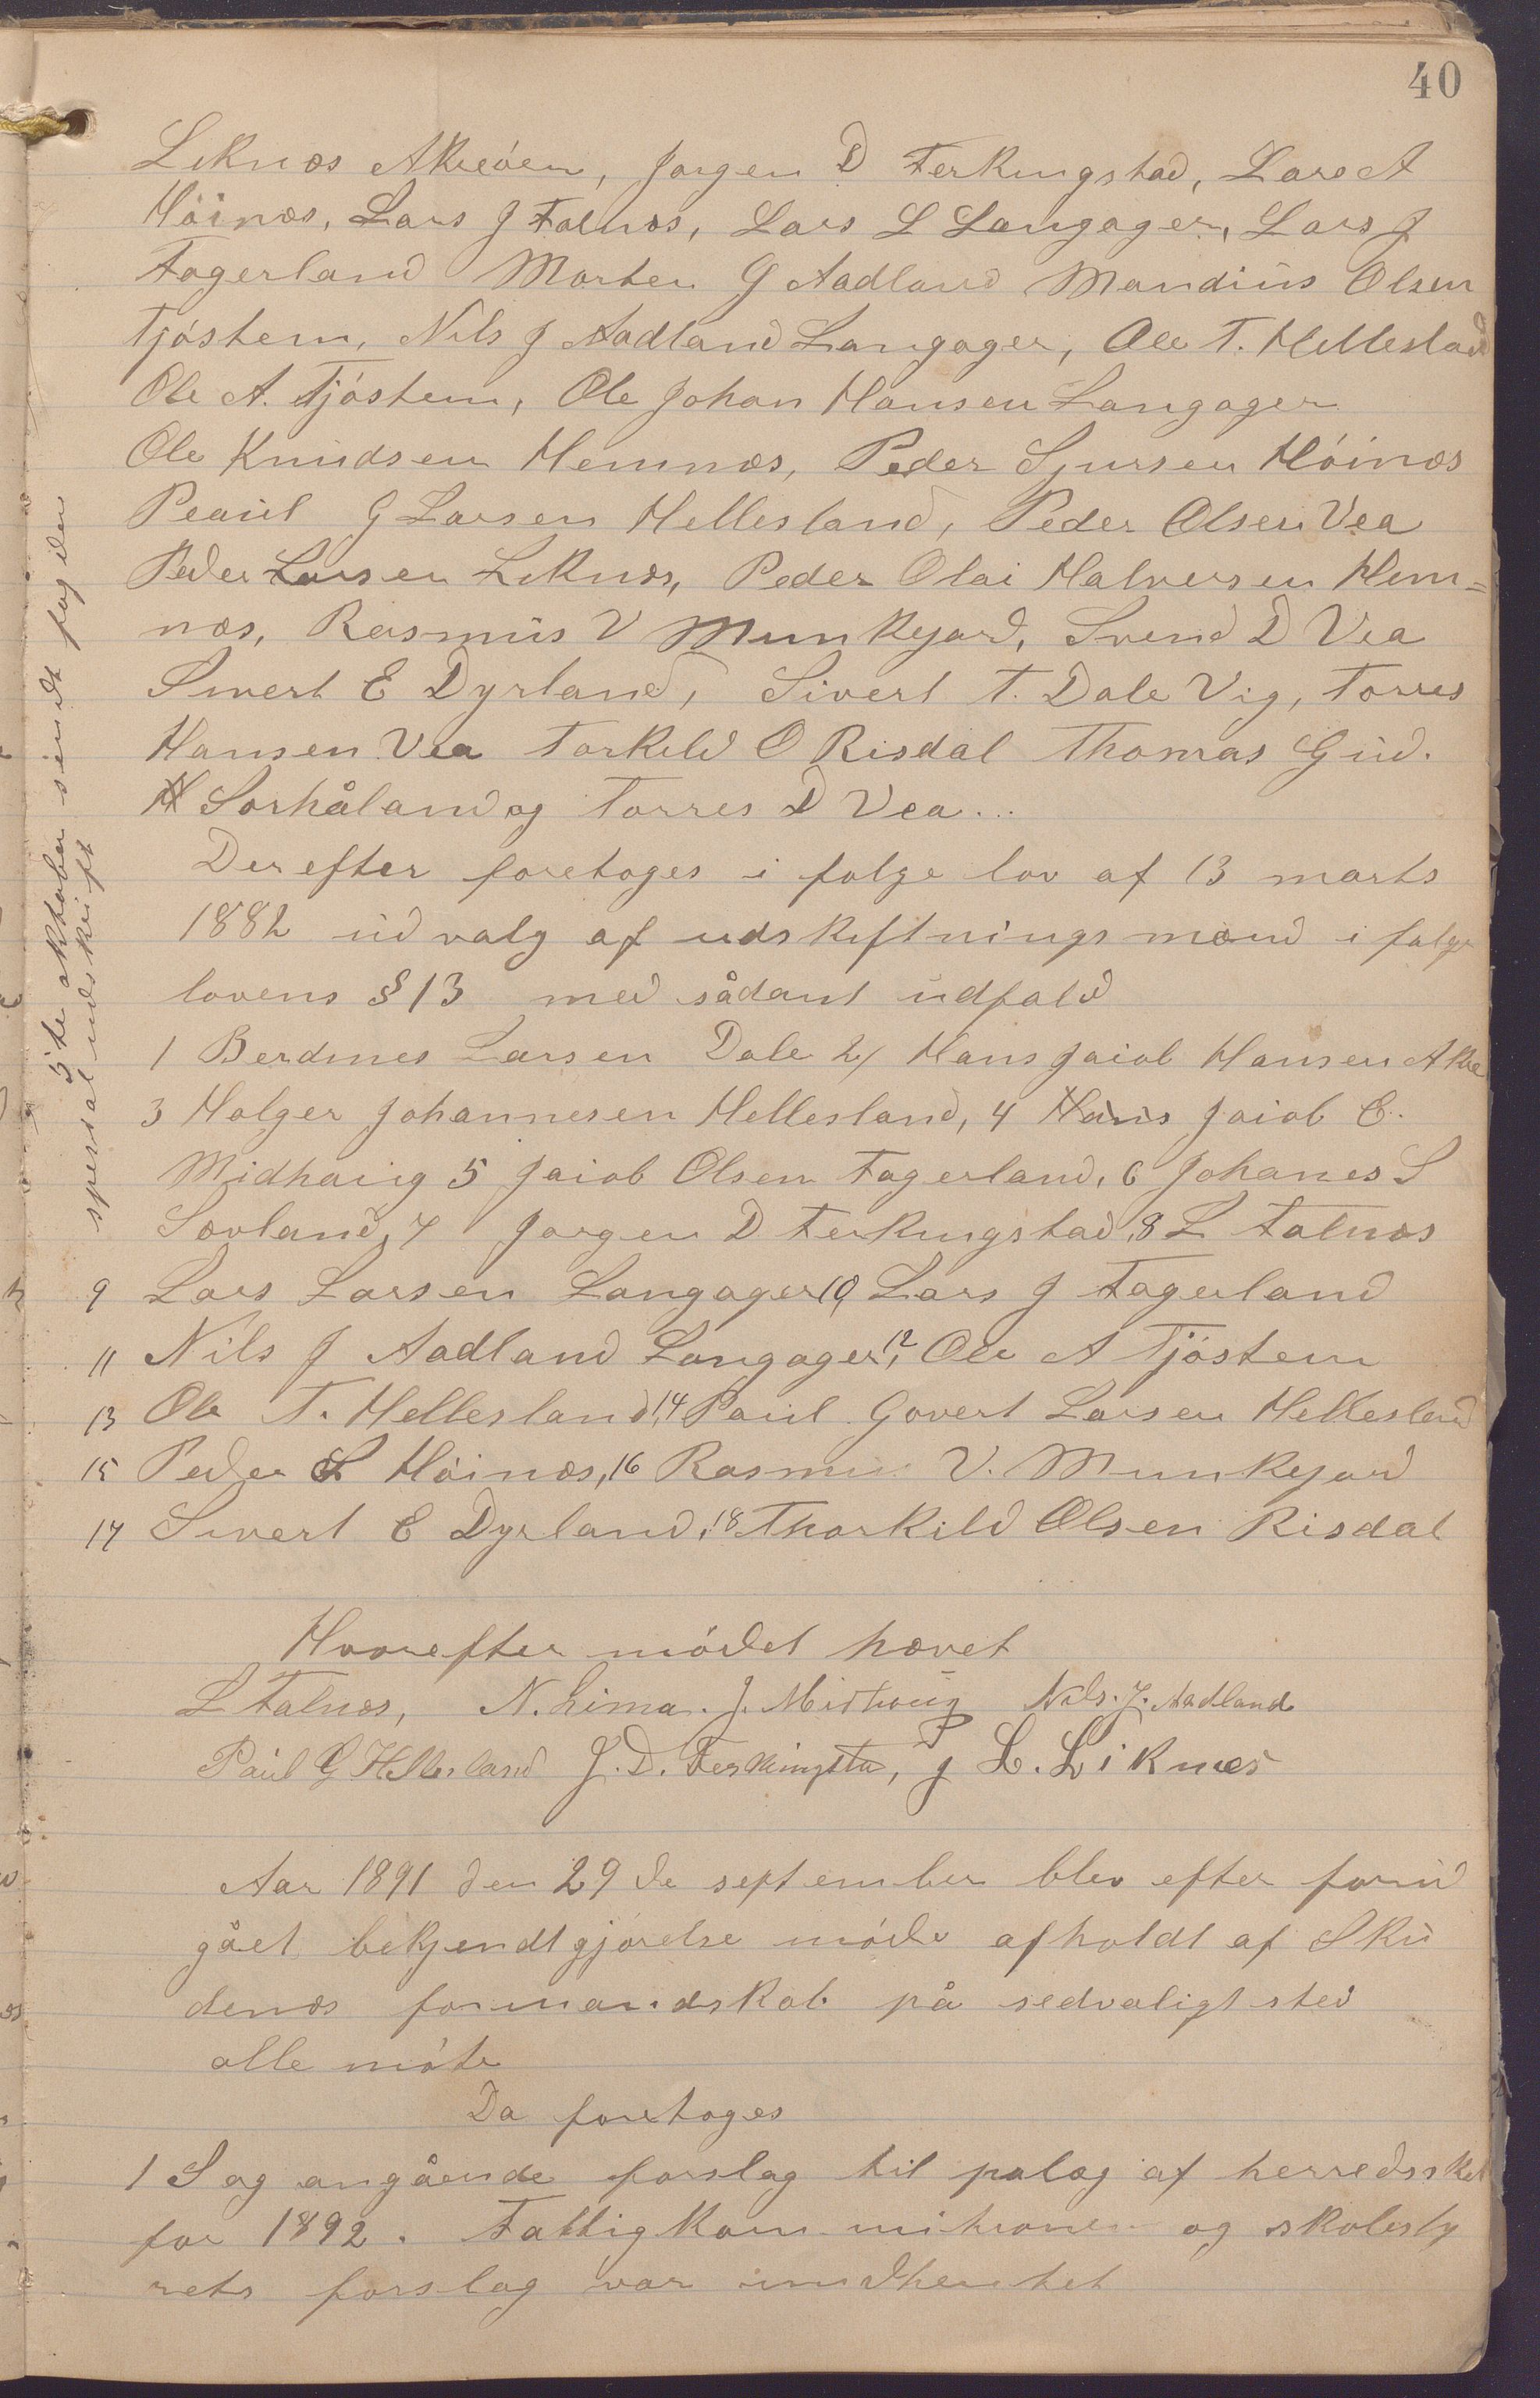 40
Liknæs Akreøen, Jørgen D Ferkingstad, Lars A
Høinæs, Lars J Falnæs, Lars L Langåger, Lars J
Fagerland Morten G Aadland Mandius Olsen
Tjøstem, Nils J Aadland Langåger, Ole T. Hellesland
Ole A. Tjøstem, Ole Johan Hansen Langåger
Ole Knudsen Hemnæs, Peder Sjursen Høinæs
Paul G Larsen Hellesland, Peder Olsen Vea
Peder Larsen Liknæs, Peder Olai Halvorsen Hem=
næs, Rasmus V Munkejord, Svend D Vea
Sivert E Dyrland, Sivert T. Dale Vig, Torres
Hansen Vea Torkild O Risdal Thomas Gud.
Sørhåland og Torres D Vea...
Derefter foretoges i følge lov af 13 marts
1882 udvalg af udskiftningsmænd i følge
lovens § 13 med sådant udfald
1 Berdines Larsen Dale 2/ Hans Jacob Hansen Akre
3 Holger Johannesen Hellesland, 4 Hans Jacob C.
Midhaug 5 Jacob Olsen Fagerland, 6 Johanes S
Søvland, 7 Jørgen D Ferkingstad, 8 L Falnæs
9 Lars Larsen Langåger, 10 Lars J Fagerland
11 Nils J Aadland Langåger, 12 Ole A Tjøstem
13 Ole T. Hellesland, 14 Paul Govert Larsen Hellesland
15 Peder S Høinæs, 16 Rasmus V. Munkejord
17 Sivert E Dyrland, 18 Thorkild Olsen Risdal
Hvorefter mødet hævet
L Falnæs, N. Lima. J. Midhaug Nils. J. Aadland
Paul G Hellesland J. D. Ferkingsta, J L. Liknæs
Aar 1891 den 29de september blev efter forud
gået bekjendtgjørelse møde afholdt af Sku
denæs formandskab på sedvaligt sted
alle møte
Da foretoges
1 Sag angående forslag til pålæg af herredsskat
for 1892. Fattigkommitionen og skolesty
rets forslag var indhentet
5te oktober sendt fogden
spesial udskrift